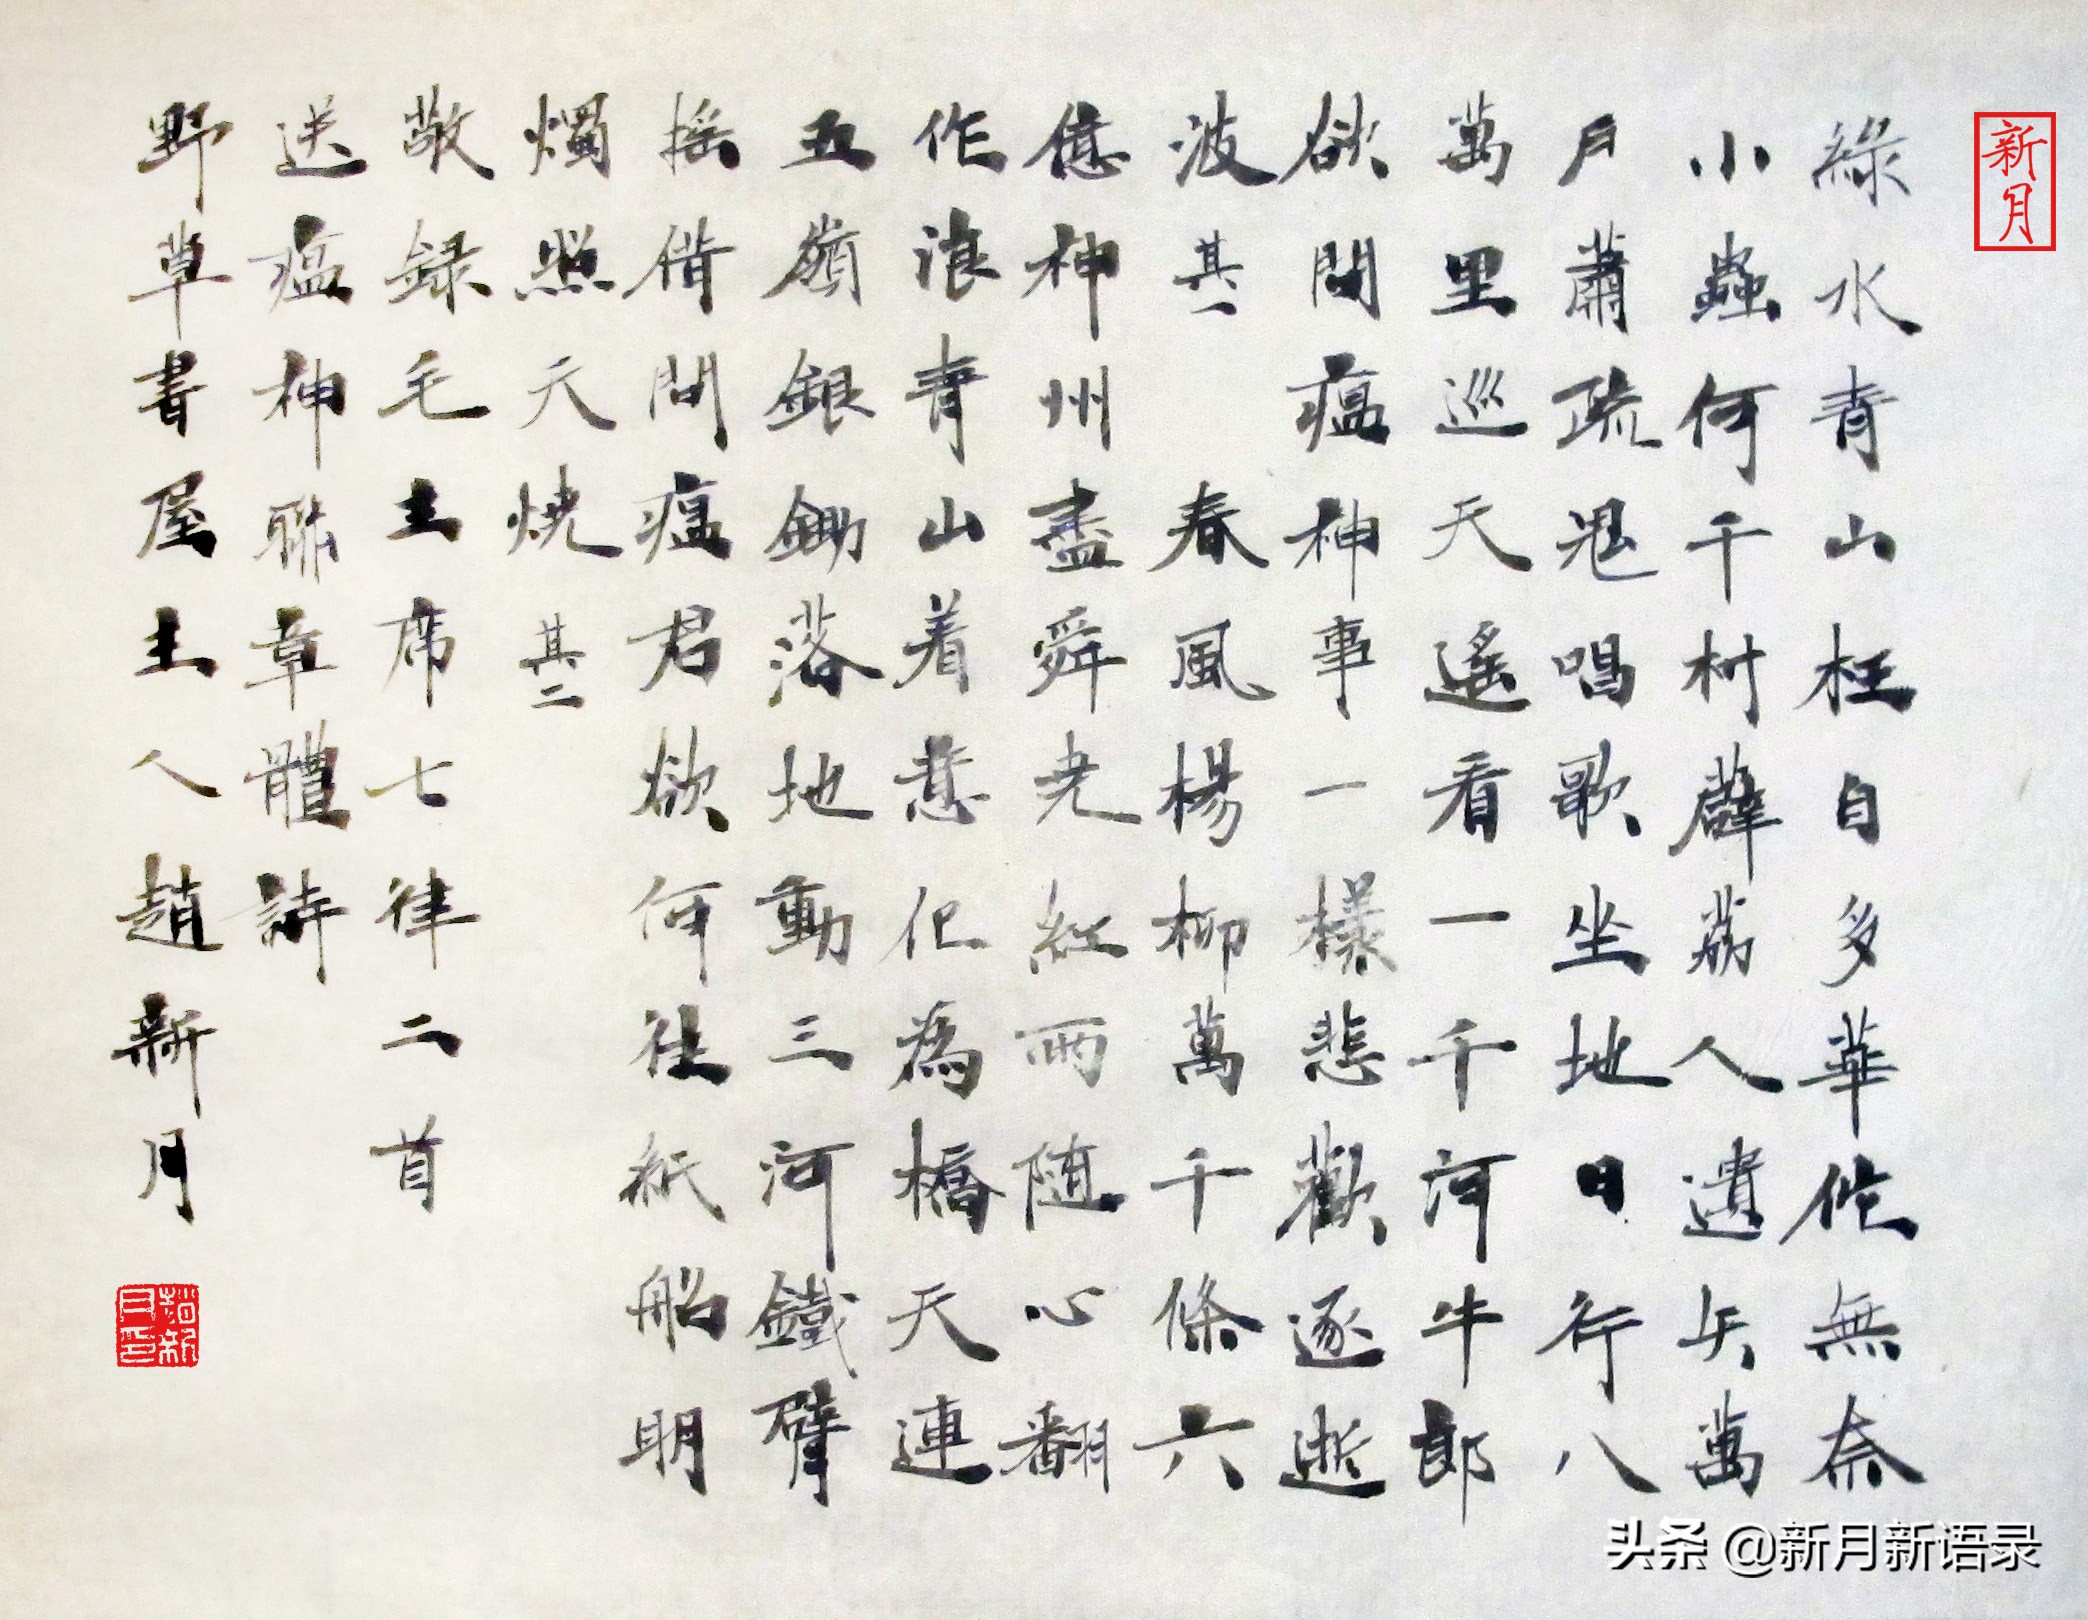 新月
綠水青山枉自多華佗無奈
小蟲何千村薜荔人遺矢萬
戶蕭疏鬼唱歌坐地日行八
萬里巡天遙看一千河牛郎
欲問瘟神事一樣悲歡逐逝
波 其一 春風楊柳萬千條六
億神州盡舜堯紅雨随心翻
作浪青山着意化為橋天連
五嶺銀鋤落地動三河鐵臂
摇借問瘟君欲何往紙船明
燭照天燒 其二
敬録毛主席七律二首
送瘟神聯章體詩
野草書屋主人趙新月
趙新月印
头条 @新月新语录